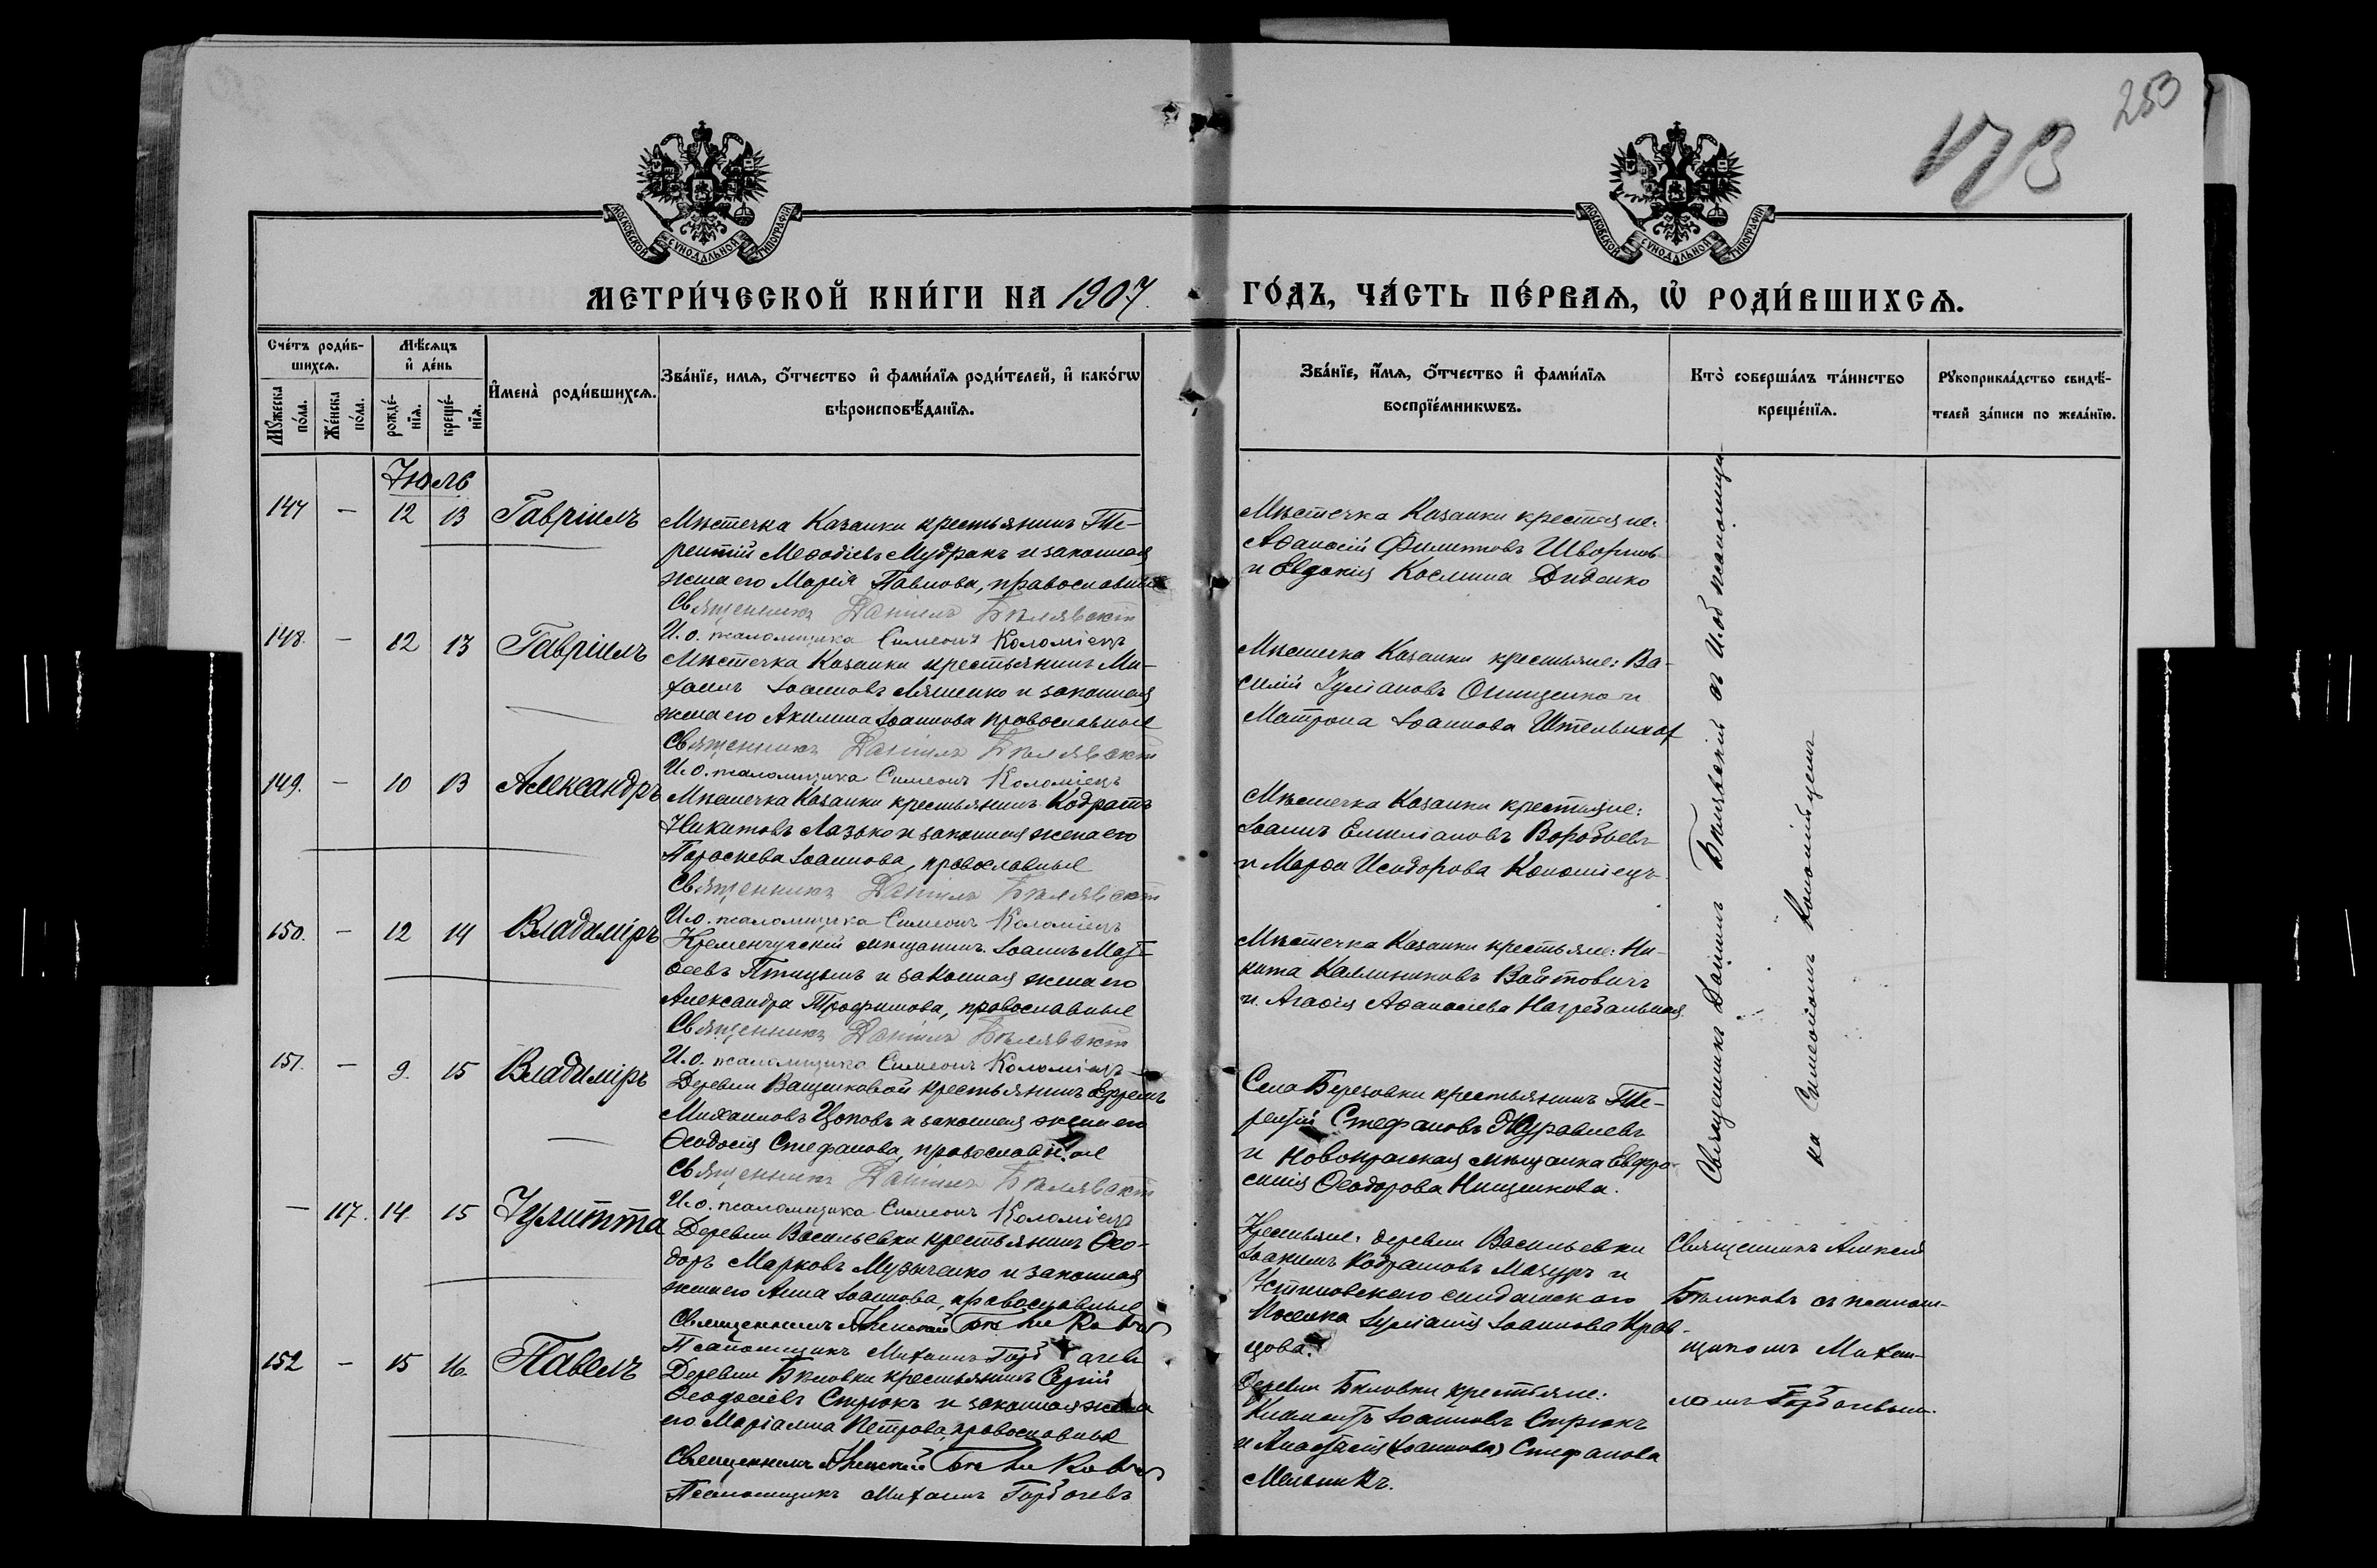 253
173
МОСКОВСКОЙ СѴНОДАЛЬНОЙ ТИПОГРАФІИ
МОСКОВСКОЙ СѴНОДАЛЬНОЙ ТИПОГРАФІИ
МЕТРИ́ЧЕСКОЙ КНИ́ГИ НА 1907
ГО́ДЪ, ЧА́СТЬ ПЕ́РВАѦ, Ѽ РОДИ́ВШИХСѦ.
Сче́тъ роди́в-
шихсѧ.
Мꙋ́жеска по́ла.
Же́нска по́ла.
Мѣ́сѧцъ
и҆ де́нь
рожде́-
нїѧ.
креще́-
нїѧ.
И҆мена̀ роди́вшихсѧ.
Зва́нїе, имѧ, ѻ҆́тчество и҆ фами́лїѧ роди́телей, и҆ како́гѡ
вѣроисповѣ́данїѧ.
Зва́нїе, и҆́мѧ, ѻ҆́тчество и҆ фами́лїѧ
воспрїе́мникѡвъ.
Кто̀ соверша́лъ та́инство
креще́нїѧ.
Рꙋкоприкла́дство свидѣ́-
телей за́писи по жела́нїю.
Іюль
147 — 12 13 Гавріилъ
Мѣстечка Казанки крестьянинъ Те-
рентій Меѳодіевъ Мудракъ и законная
жена его Марія Павлова, православные
Священникъ Даніилъ Бѣлявскій
И. о. псаломщика Симеонъ Коломіецъ
Мѣстечка Казанки крестьяне:
Аѳанасій Филиповъ
и Евдокія Космина Диденко
148. — 12 13 Гавріилъ
Мѣстечка Казанки крестьянинъ Ми-
хаилъ Іоанновъ Ляшенко и законная
жена его Акилина Іоаннова православные
Священникъ Даніилъ Бѣлявскій
И. о. псаломщика Симеонъ Коломіецъ
Мѣстечка Казанки крестьяне: Ва-
силій Іуліановъ Онищенко и
Матрона Іоаннова
149. — 10 13 Александръ
Мѣстечка Казанки крестьянинъ Кодратъ
Никитовъ Лазько и законная жена его
Параскева Іоаннова, православные
Священникъ Даніилъ Бѣлявскій
И. о. псаломщика Симеонъ Коломіецъ
Мѣстечка Казанки крестьяне:
Іоаннъ Емиліановъ Воробьевъ
и Марѳа Исидорова Коломіецъ
150. — 12 14 Владиміръ
Кременчугскій мѣщанинъ Іоаннъ Мат-
ѳеевъ Птицынъ и законная жена его
Александра Трофимова, православные
Священникъ Даніилъ Бѣлявскій
И. о. псаломщика Симеонъ Коломіецъ
Мѣстечка Казанки крестьяне: Ни-
кита Каллиниковъ Войтовичъ
и Агаѳія Аѳанасіева Нагребальная
151. — 9. 15 Владиміръ
Деревни Ващенковой крестьянинъ Ефремъ
Михаиловъ Цоповъ и законная жена его
Ѳеодосія Стефанова, православные
Священникъ Даніилъ Бѣлявскій
И. о. псаломщика Симеонъ Коломіецъ
Села Березовки крестьянинъ Те-
рентій Стефановъ Журавлевъ
и Новопражская мѣщанка Евфро-
синія Ѳеодорова Нищенкова.
Священникъ Даніилъ Бѣлявскій съ И. об псаломщи-
ка Симеономъ Коломійцемъ
— 117. 14 15 Іулитта
Деревни Васильевки крестьянинъ Ѳео-
доръ Марковъ Музыченко и законная
жена его Анна Іоаннова, православные
Священникъ Алексій Бѣликовъ
Псаломщикъ Михаилъ Горбачевъ
Крестьяне: деревни Васильевки
Іоакимъ Кодратовъ Мазуръ и
Устиновского
поселка Іуліанія Іоаннова Крав-
цова.
Священникъ Алексій
Бѣликовъ съ псалом-
щикомъ Михаи-
ломъ Горбачевымъ.
152 — 15 16. Павелъ
Деревни Бѣловки крестьянинъ Сергій
Ѳеодосіевъ Стрюкъ и законная жена
его Маріамна Петрова, православные
Священникъ Алексій Бѣликовъ
Псаломщикъ Михаилъ Горбачевъ
Деревни Бѣловки крестьяне:
Климентъ Іоанновъ Стрюкъ
и Анастасія (Іоаннова) Стефанова
Мельникъ.